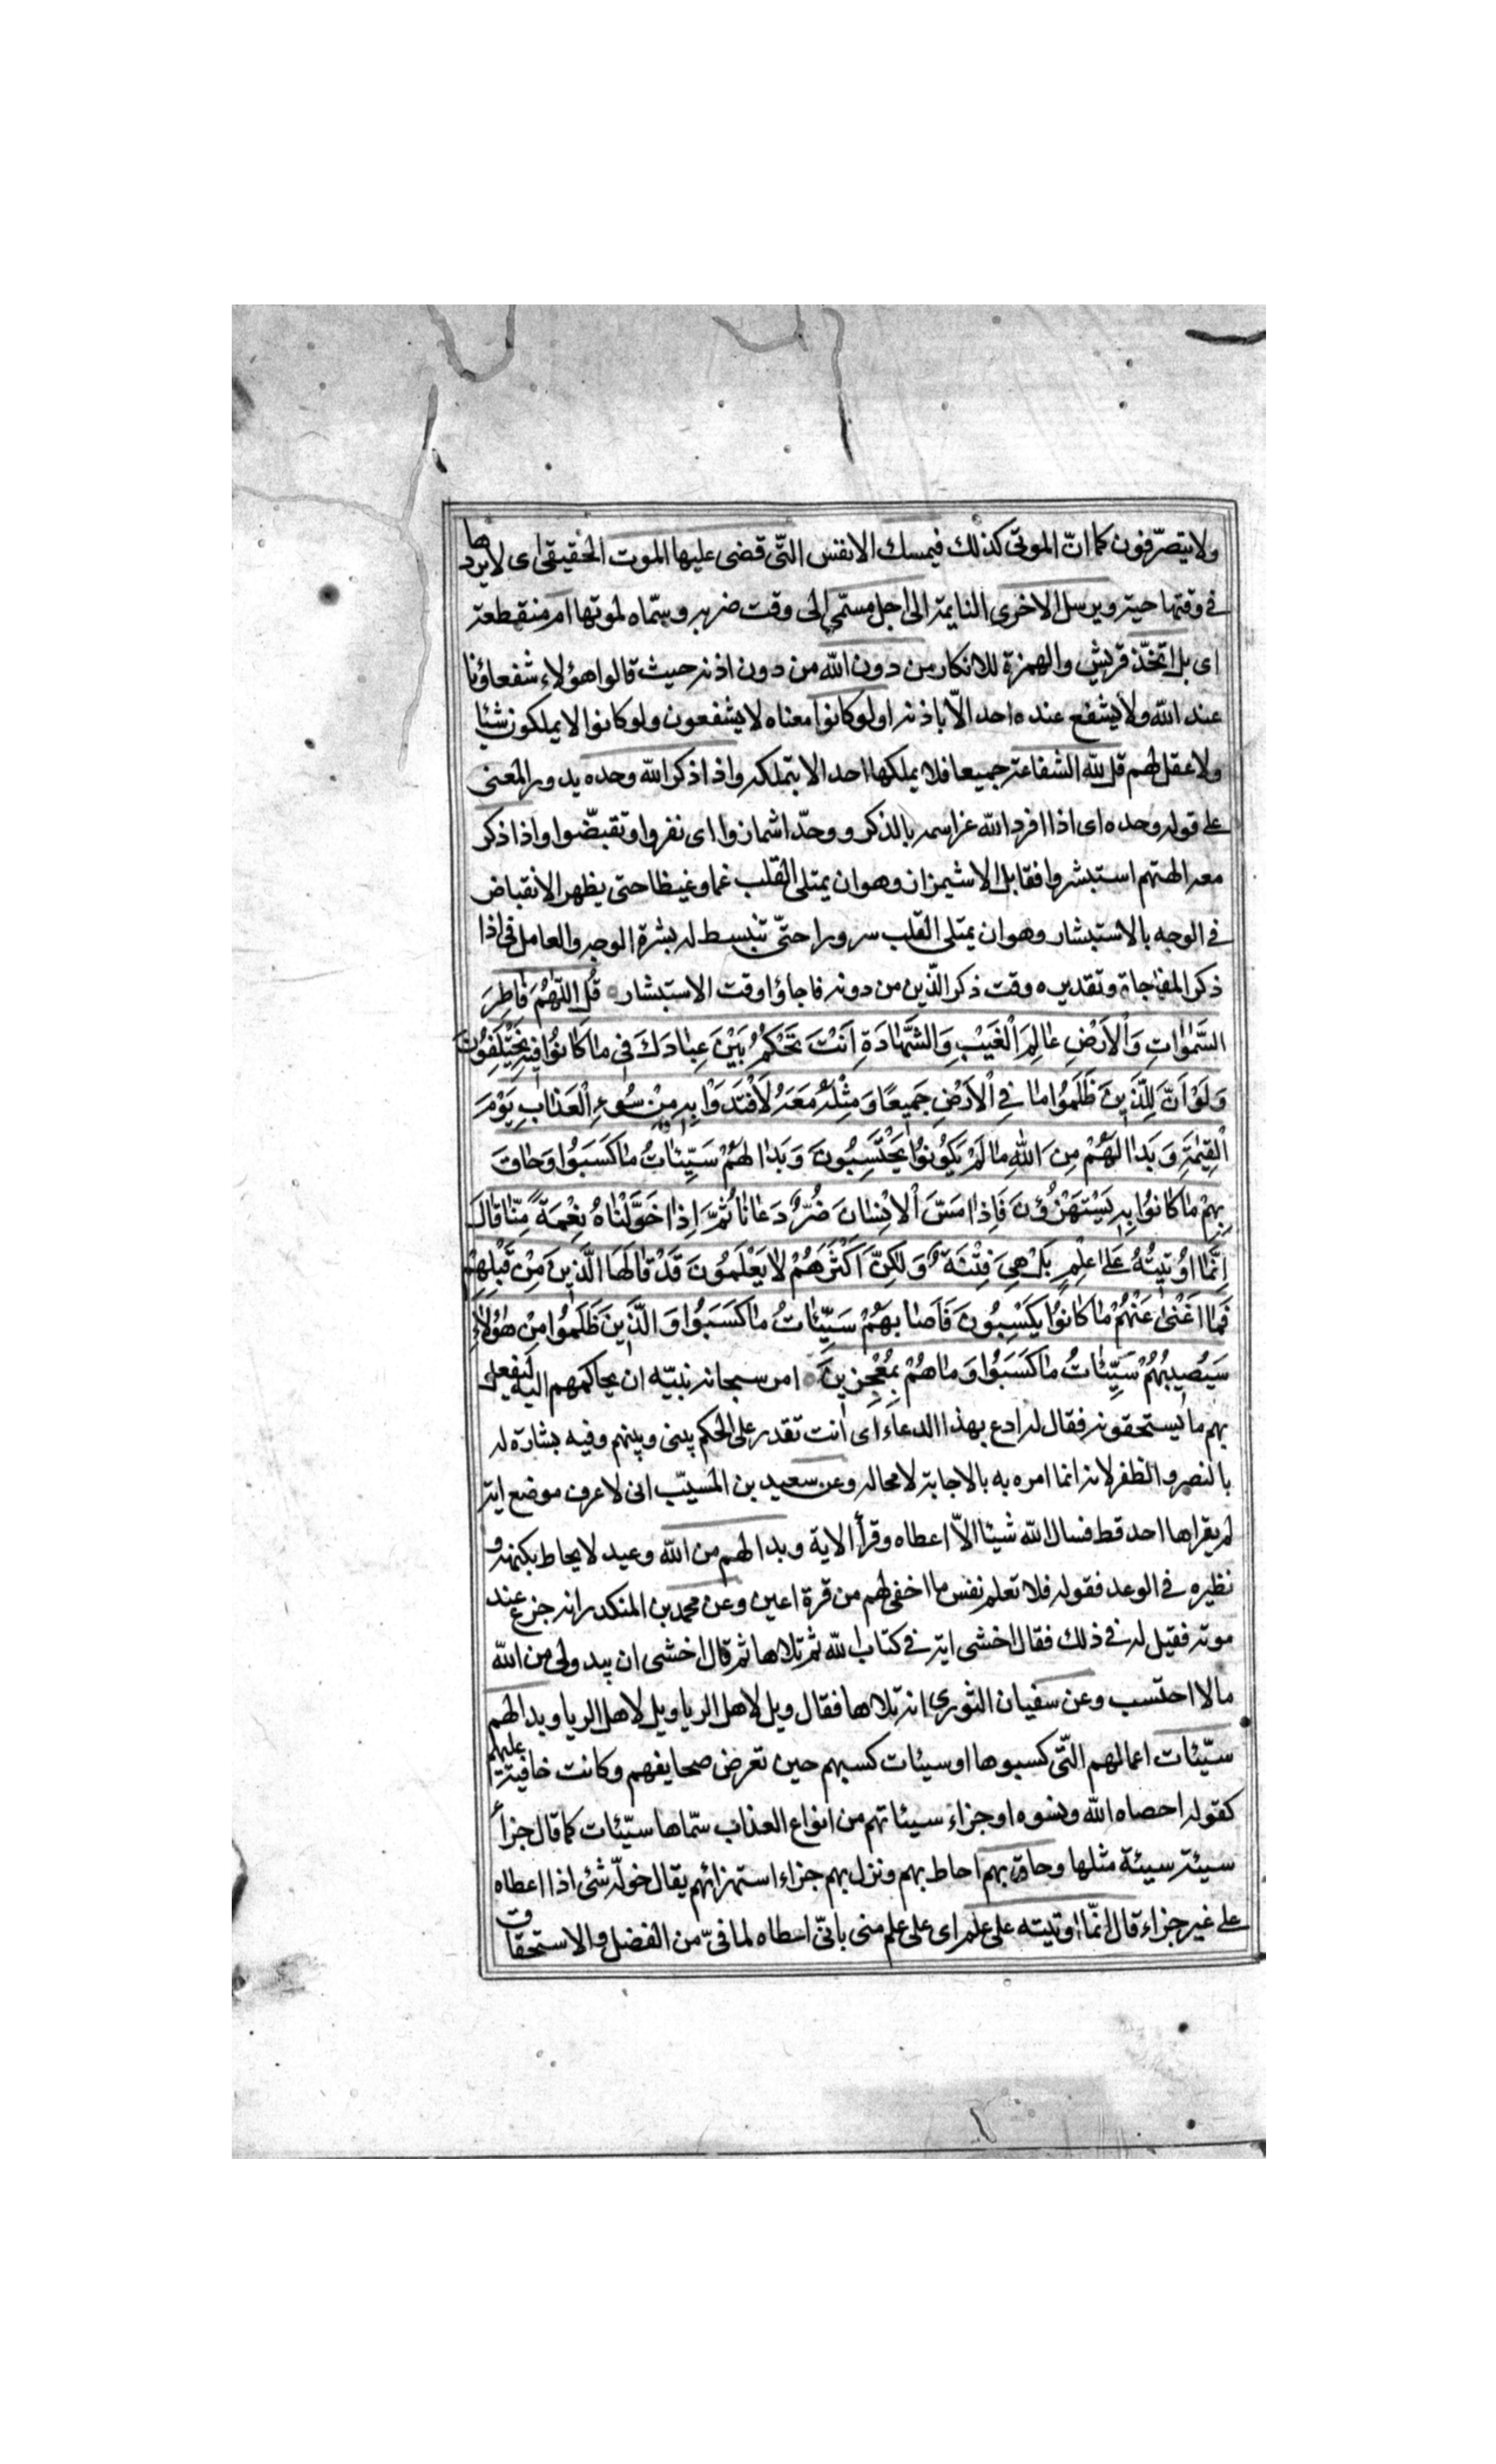 ولا يتصرّفون كما انّ الموتى كذلك فيمسك الانفس التّى قضى عليها الموت الحقيقى اى لا يردها
فى وقتها حية ويرسل الاخرى النايمة الى اجل مسمّى الى وقت ضربه وسمّاه لموتها ام منقطعة
اى بل اتخّذ قريش والهمزة للانكار من دون الله من دون اذنه حيث قالوا هؤلاء شفعاؤنا
عند الله ولا يشفع عنده احد الّا باذنه اولو كانوا معناه لا يشفعون ولو كانوا لا يملكون شيئا
ولا عقل لهم قل لله الشفاعة جميعا فلا يملكها احد الا بتمليكه واذا ذكر الله وحده يدور المعنى
على قوله وحده اى اذا افرد الله عز اسمه بالذكر ووحّد اشمازوا اى نفروا وتقبضّوا واذا ذكر
معه الهتهم استبشروا فقابل الاشيمزاز وهو ان يمتلى القلب غما وغيظا حتى يظهر الانقباض
فى الوجه بالاستبشار وهو ان يمتلى القلب سرورا حتّى تنبسط له بشرة الوجه والعامل فى اذا
ذكر المفاجاة وتقديره وقت ذكر الّذين من دونه فاجاؤا وقت الاستبشار قُلِ اللّٰهُمَّ فَاطِرَ
السَّمٰوَاتِ وَالْاَرْضِ عَالِمَ الْغَيْبِ وَالشَّهَادَةِ اَنْتَ تَحْكُمُ بَيْنَ عِبَادَكَ فِى مَا كَانُوا فِيهِ يَخْتَلِفُونَ
وَلَوْ اَنَّ لِلَّذِينَ ظَلَمُوا مَا فِى الْاَرْضِ جَمِيعًا وَمِثْلَهُ مَعَهُ لَافْتَدَوْا بِهِ مِنْ سُوءِ الْعَذَابِ يَوْمَ
الْقِيٰمَةِ وَبَدَا لَهُمْ مِنَ اللّٰهِ مَا لَمْ يَكُونُوا يَحْتَسِبُونَ وَبَدَا لَهُمْ سَيِّئَاتُ مَا كَسَبُوا وَحَاقَ
بِهِمْ مَا كَانُوا بِهِ يَسْتَهْزِؤُنَ فَاِذَا مَسَّ الْاِنْسَانَ ضُرٌّ دَعَانَا ثُمَّ اِذَا خَوَّلْنَاهُ نِعْمَةً مِنَّا قَالَ
اِنَّمَا اُوتِيتُهُ عَلَى عِلْمٍ بَلْ هِىَ فِتْنَةٌ وَلٰكِنَّ اَكْثَرَهُمْ لَا يَعْلَمُونَ قَدْ قَالَهَا الَّذِينَ مِنْ قَبْلِهِمْ
فَمَا اَغْنٰى عَنْهُمْ مَا كَانُوا يَكْسِبُونَ فَاَصَابَهُمْ سَيِّئَاتُ مَا كَسَبُوا وَالَّذِينَ ظَلَمُوا مِنْ هٰؤُلَاءِ
سَيُصِيبُهُمْ سَيِّئَاتُ مَا كَسَبُوا وَمَا هُمْ بِمُعْجِزِينَ امر سبحانه نبيّه ان يحاكمهم اليه ليفعل
بهم ما يستحقونه فقال له ادع بهذا الدعاء اى انت تقدر على الحكم بينى وبينهم وفيه بشارة له
بالنصر والظفر لانه انما امره به بالاجابة لا محاله وعن سعيد بن المسيّب انى لا عرف موضع اية
لم يقراها احد قط فسال الله شيئا الّا اعطاه وقرأ الاية وبدا لهم من الله وعيد لا يحاط بكنهه و
نظيره فى الوعد فقوله فلا تعلم نفس ما اخفى لهم من قرة اعين وعن محمد بن المنكدر انه جزع عند
موته فقيل له فى ذلك فقال اخشى اية فى كتاب الله ثم تلاها ثم قال اخشى ان يبدو لى من الله
ما لا احتسب وعن سفيان الثورى انه تلاها فقال ويل لاهل الريا ويل لاهل الريا وبدا لهم
سيّئات اعمالهم التّى كسبوها او سيئات كسبهم حين تعرض صحايفهم وكانت خافية عليهم
كقوله احصاه الله ونسوه او جزاء سيئاتهم من انواع العذاب سمّاها سيّئات كما قال جزأ
سيئة سيئة مثلها وحاق بهم احاط بهم ونزل بهم جزاء استهزائهم يقال خولّه شئ اذا اعطاه
على غير جزاء قال انّما اوتيته على علم اى على علم منى بانّى اسطاه لما فىّ من الفضل والاستحقاق